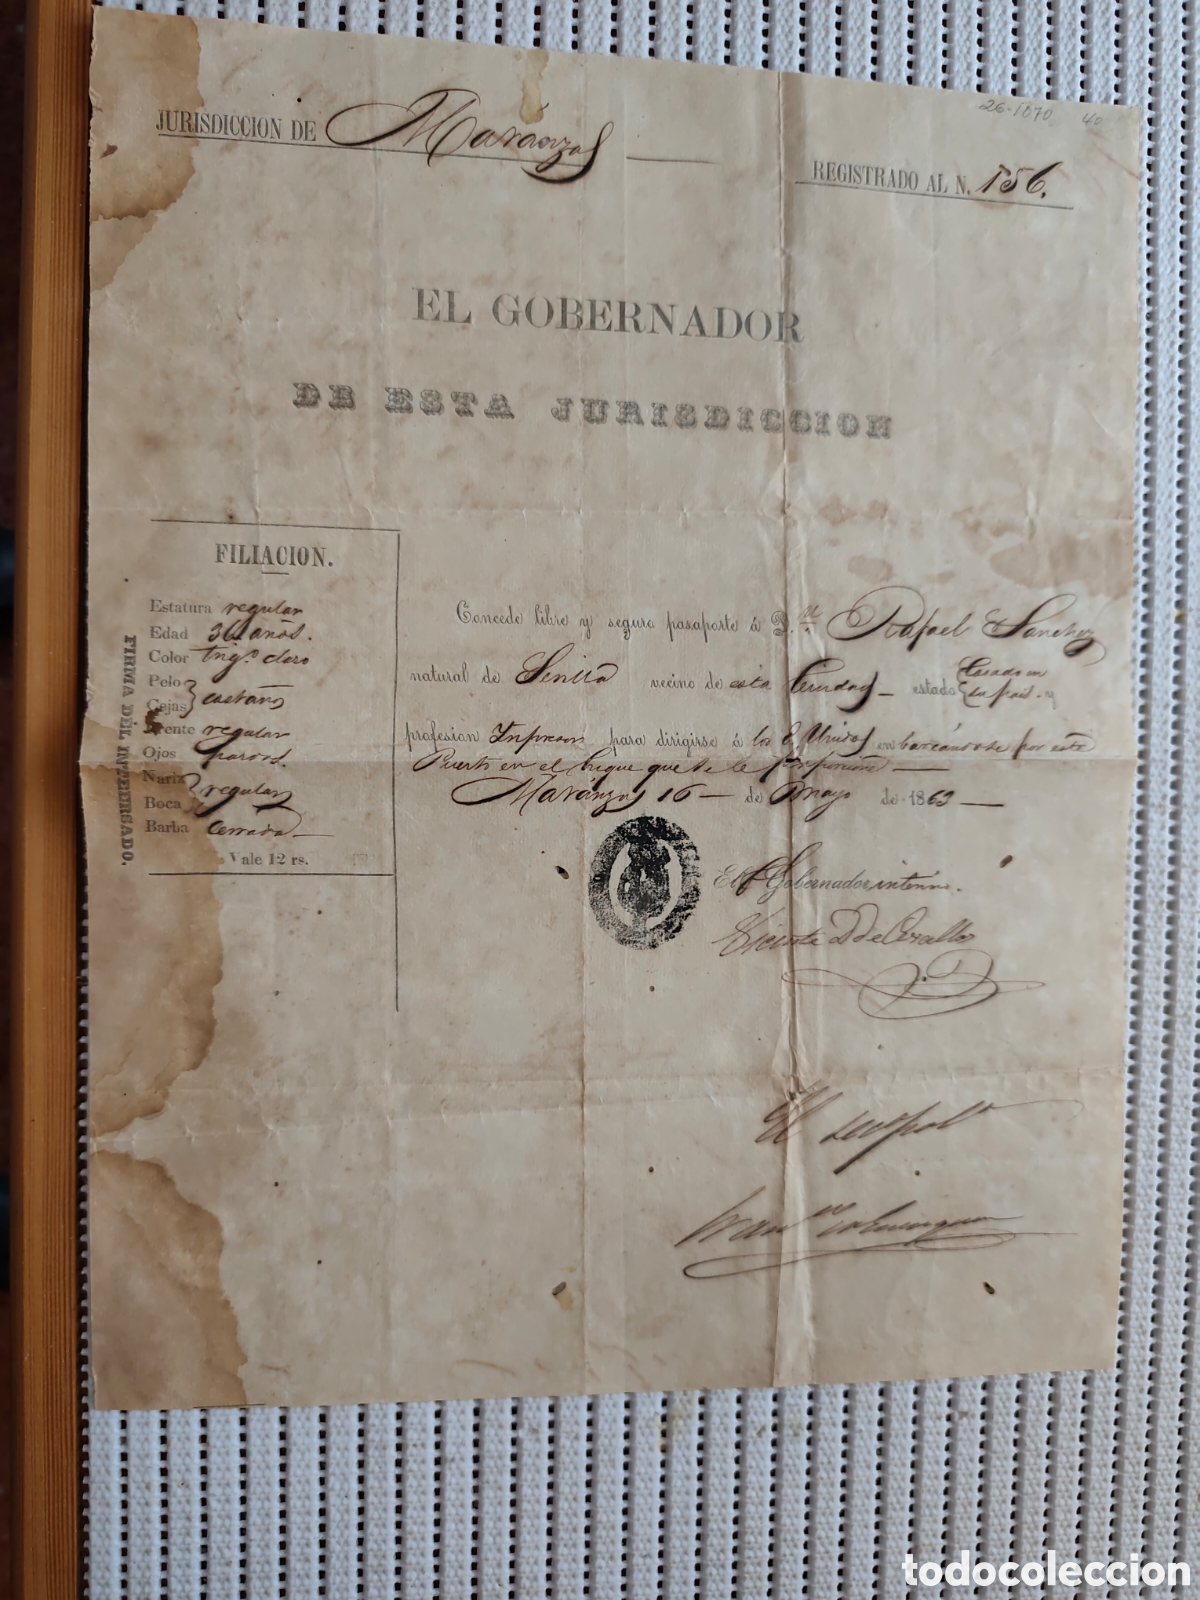 26-1070 40
JURISDICCION DE Matánzas
REGISTRADO AL N. 156.
EL GOBERNADOR
DE ESTA JURISDICCION
FILIACION.
Estatura regular
Edad años.
Color trigº claro
Pelo
Cejas } castaños
Frente regular
Ojos pardos.
Nariz
Boca } regular
Barba Cerrada
Vale 12 rs.
FIRMA DEL INTERESADO.
Concede libre y seguro pasaporte á D.n Rafael Sanchez
natural de vecino de esta Ciudad estado Casado en su pais y
profesion Impresor para dirigirse á los E. Unidos embarcándose por este
Puerto en el buque que se le proporcione
Matánzas 16 de Mayo de 1863
El Gobernador interino.
Vicente D de Ceballos
El
todocoleccion